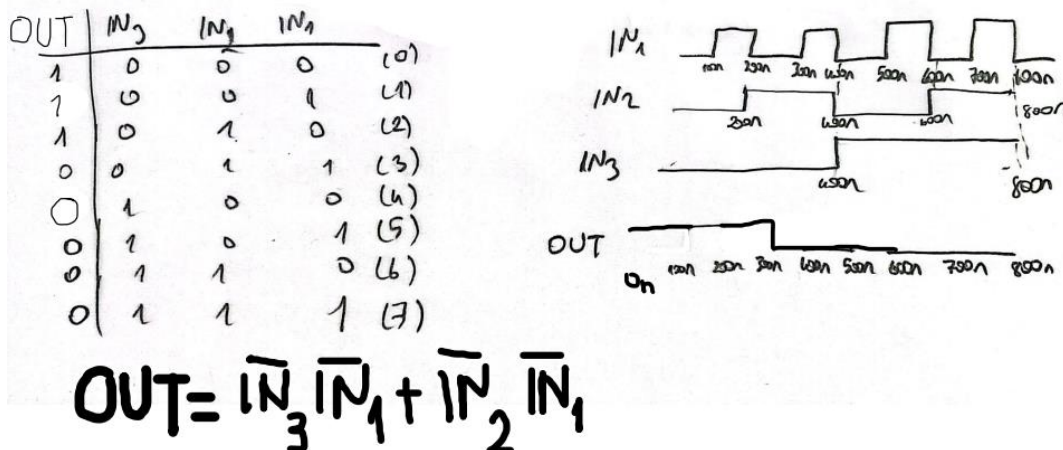 OUT IN₃ IN₂ IN₁
1 0 0 0 (0)
1 0 0 1 (1)
1 0 1 0 (2)
0 0 1 1 (3)
0 1 0 0 (4)
0 1 0 1 (5)
0 1 1 0 (6)
0 1 1 1 (7)
IN₁
100n 200n 300n 400n 500n 600n 700n 800n
IN2
200n 400n 600n 800n
IN₃
400n 800n
OUT
0n 100n 200n 300n 400n 500n 600n 700n 800n
OUT= I̅N̅₃ I̅N̅₁ + I̅N̅₂ I̅N̅₁